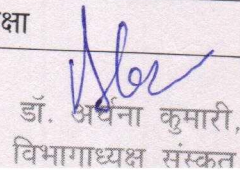 क्षा
डॉ. अर्चना कुमारी,
विभागाध्यक्ष संस्कृत